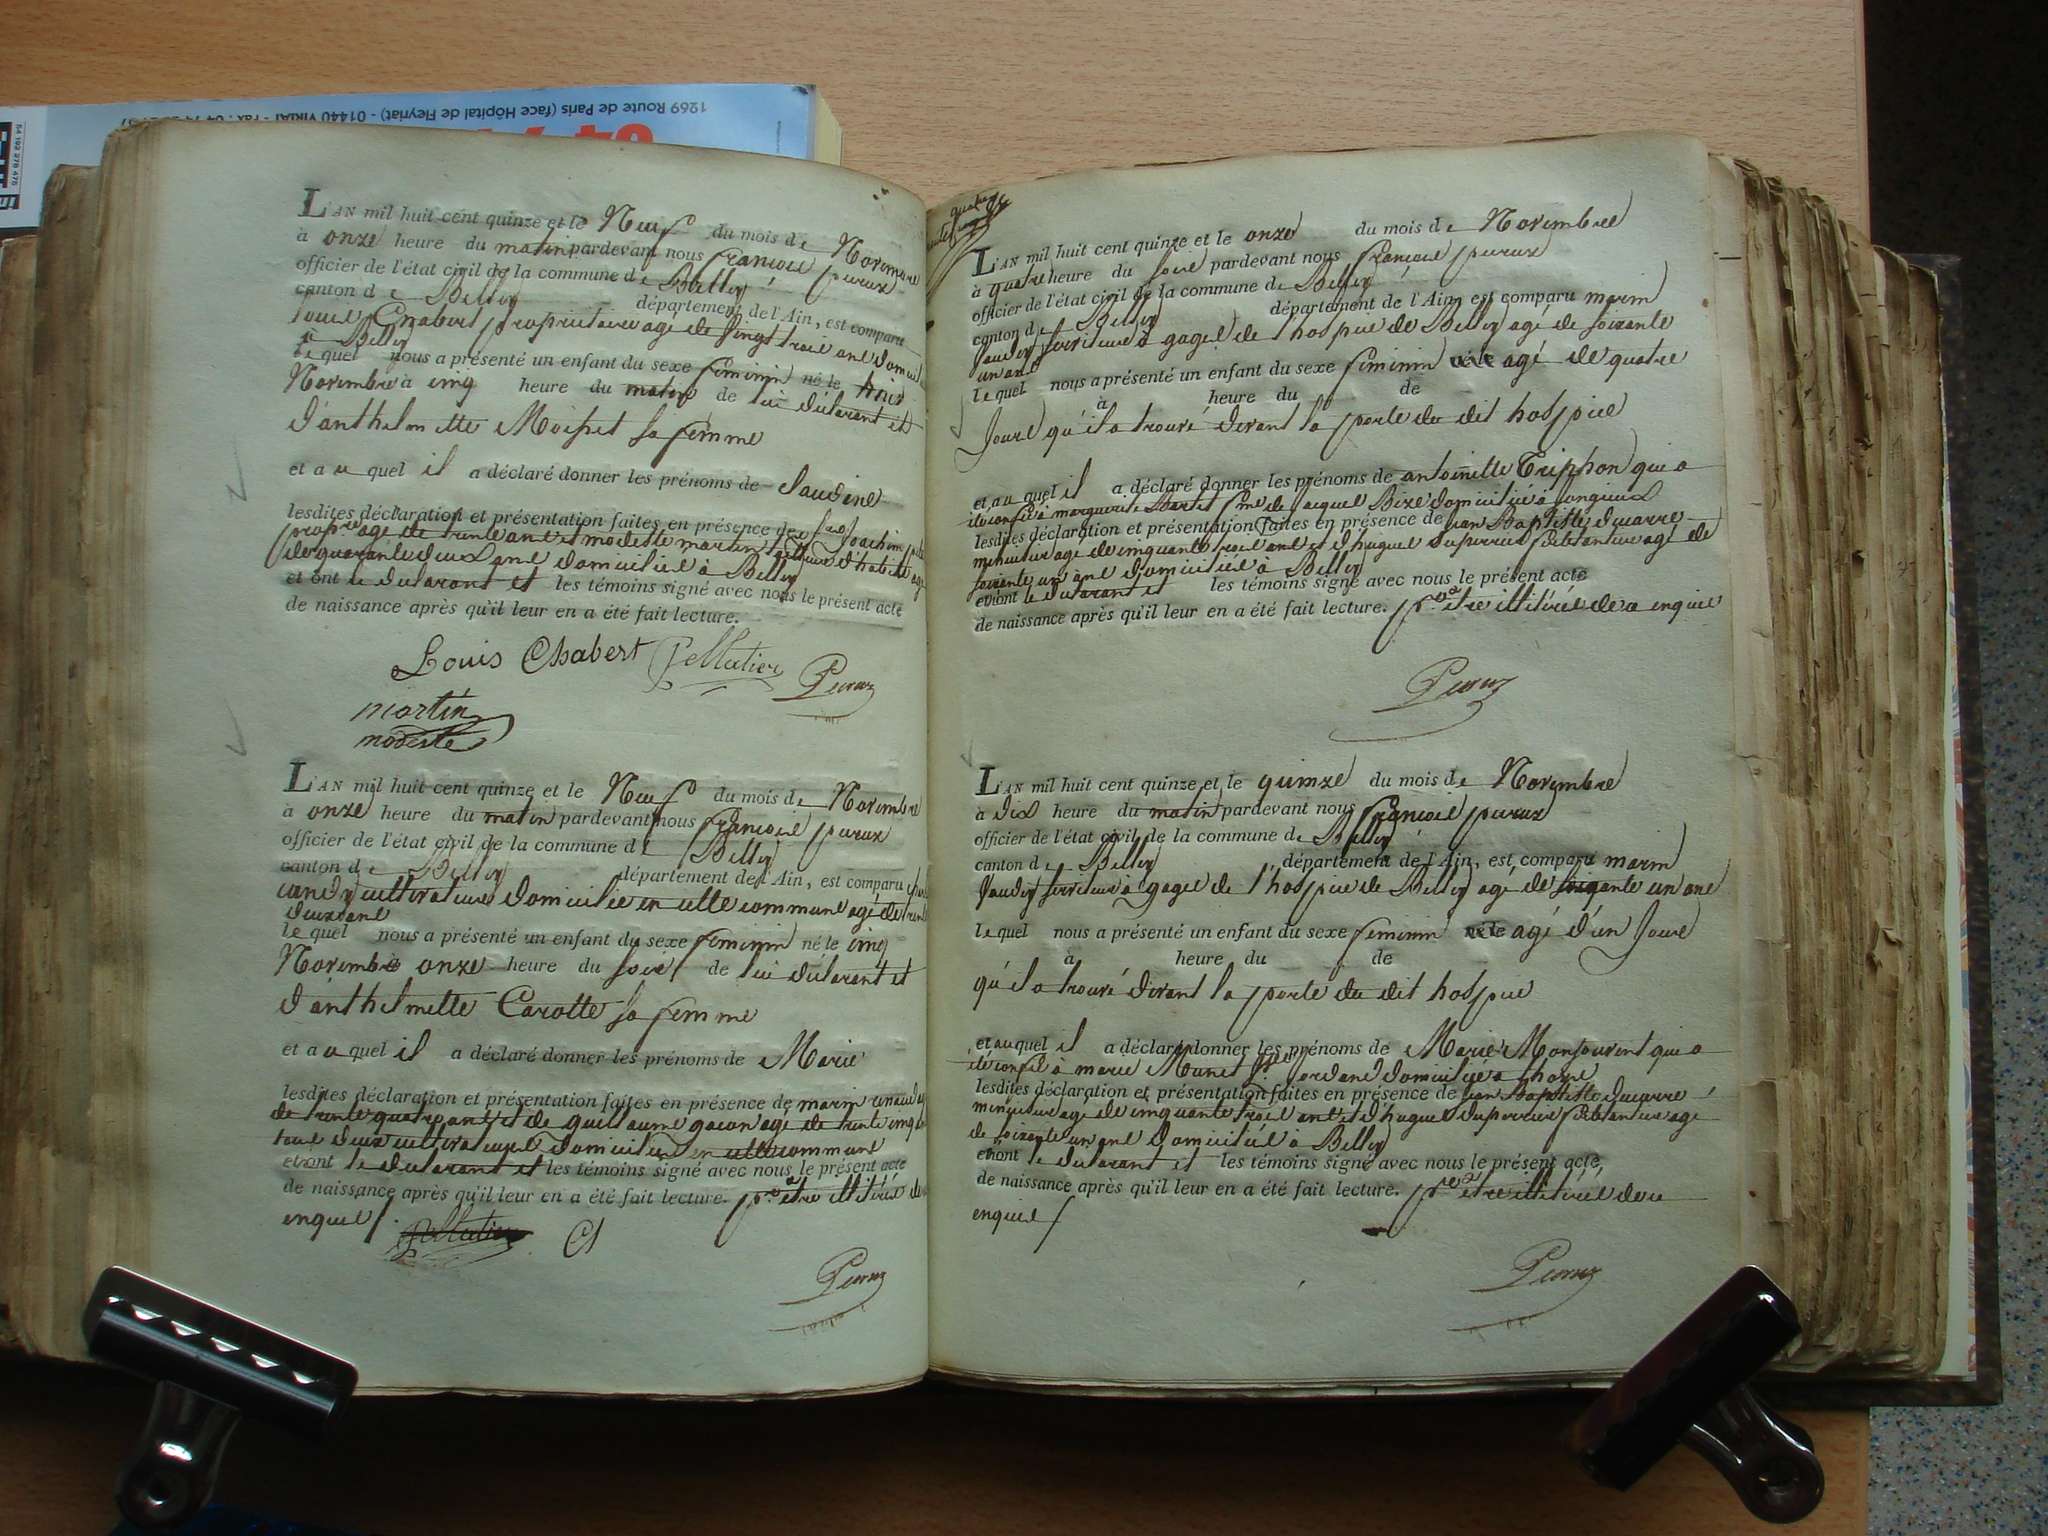 1269 Route de Paris (face Hôpital de Fleyriat) - 01440 VIRIAT - Fax : 04 74
L'AN mil huit cent quinze et le Neuf du mois de Novembre
à onze heure du matin pardevant nous françois peureux
officier de l'état civil de la commune de Belley
canton de Belley département de l'Ain, est comparu
Louis Chabert proprietaire agé de vingt trois ans domicil
à Belley
le quel nous a présenté un enfant du sexe feminin né le trois
Novembre à cinq heure du matin de lui déclarant et
d'anthelmette sa femme
et au quel il a déclaré donner les prénoms de Claudine
lesdites déclaration et présentation faites en présence de Joachim
propre agé de trente ans et modeste martin
de quarante deux ans domiciliés à Belley
et ont le déclarant et les témoins signé avec nous le présent acte
de naissance après qu'il leur en a été fait lecture.
Louis Chabert Pellatier
martin
modeste
L'AN mil huit cent quinze et le Neuf du mois de Novembre
à onze heure du matin pardevant nous françois peureux
officier de l'état civil de la commune de Belley
canton de Belley département de l'Ain, est comparu
cultivateur domicilié en cette commune agé de trente
deux ans
le quel nous a présenté un enfant du sexe feminin né le cinq
Novembre à onze heure du soir de lui déclarant et
d'anthelmette Carotte sa femme
et au quel il a déclaré donner les prénoms de Marie
lesdites déclaration et présentation faites en présence de marin
de trente quatre ans et de guillaume gacon agé de trente cinq
tous deux cultivateurs domiciliés en cette commune
et ont le déclarant et les témoins signé avec nous le présent acte
de naissance après qu'il leur en a été fait lecture. illitérés de ce
enquis
L'AN mil huit cent quinze et le onze du mois de Novembre
à quatre heure du soir pardevant nous françois peureux
officier de l'état civil de la commune de Belley
canton de Belley département de l'Ain, est comparu marin
serviteur à gages de l'hospice de Belley agé de soixante
un ans
le quel nous a présenté un enfant du sexe feminin né le agé de quatre
à heure du de
Jours qu'il a trouvé devant la porte du dit hospice
et au quel il a déclaré donner les prénoms de antoinette Triphon qui a
été confié à marguerite fme de jacques Bize domicilié à jongieux
lesdites déclaration et présentation faites en présence de jean Baptiste
agé de cinquante trois ans et d'hugues agé de
soixante un ans domiciliés à Belley
et ont le déclarant et les témoins signé avec nous le présent acte
de naissance après qu'il leur en a été fait lecture. illitérés de ce enquis
L'AN mil huit cent quinze et le quinze du mois de Novembre
à dix heure du matin pardevant nous françois peureux
officier de l'état civil de la commune de Belley
canton de Belley département de l'Ain, est comparu marin
serviteur à gages de l'hospice de Belley agé de soixante un ans
le quel nous a présenté un enfant du sexe feminin né le agé d'un Jour
à heure du de
qu'il a trouvé devant la porte du dit hospice
et au quel il a déclaré donner les prénoms de Marie qui a
été confié à marie domicilié à
lesdites déclaration et présentation faites en présence de jean Baptiste
agé de cinquante trois ans et d'hugues agé
de soixante un ans domiciliés à Belley
et ont le déclarant et les témoins signé avec nous le présent acte,
de naissance après qu'il leur en a été fait lecture. illitérés de ce
enquis